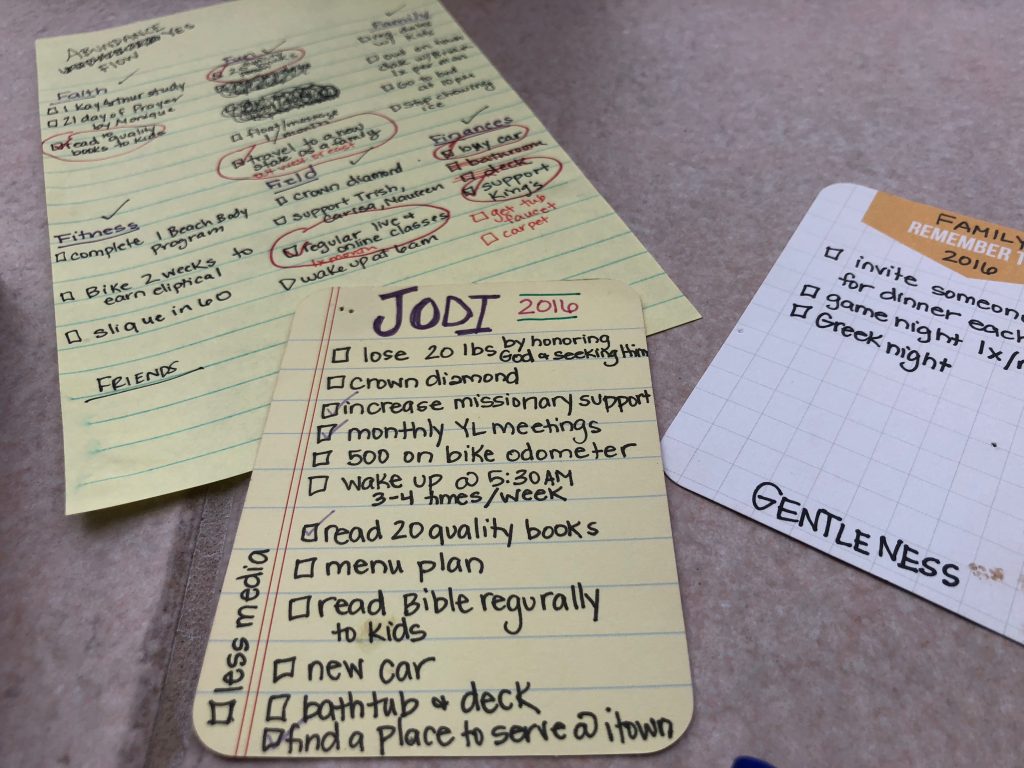 ABUNDANCE
YES
FLOW
Faith
1 Kay Arthur study
21 day of Prayer
by Monique
read quality
books to kids
Fitness
complete 1 Beach Body
Program
Bike 2 weeks to
earn eliptical
slique in 60
FRIENDS
travel to a new
state as a family
Field
crown diamond
support Trish,
Carisa, Naureen
regular live &
online classes
wake up at 6am
Family
w/ kids
1x per month
Go to bed
Stop chewing
ice
Finances
buy car
bathroom
deck
support
King's
get tub
faucet
carpet
JODI 2016
lose 20 lbs by honoring
God & seeking Him
crown diamond
increase missionary support
monthly YL meetings
500 on bike odometer
wake up @ 5:30AM
3-4 times/week
read 20 quality books
menu plan
read Bible regurally
to kids
new car
bathtub & deck
find a place to serve @ itown
less media
FAMILY
REMEMBER T
2016
invite someon
for dinner each
game night 1x/
Greek night
GENTLENESS